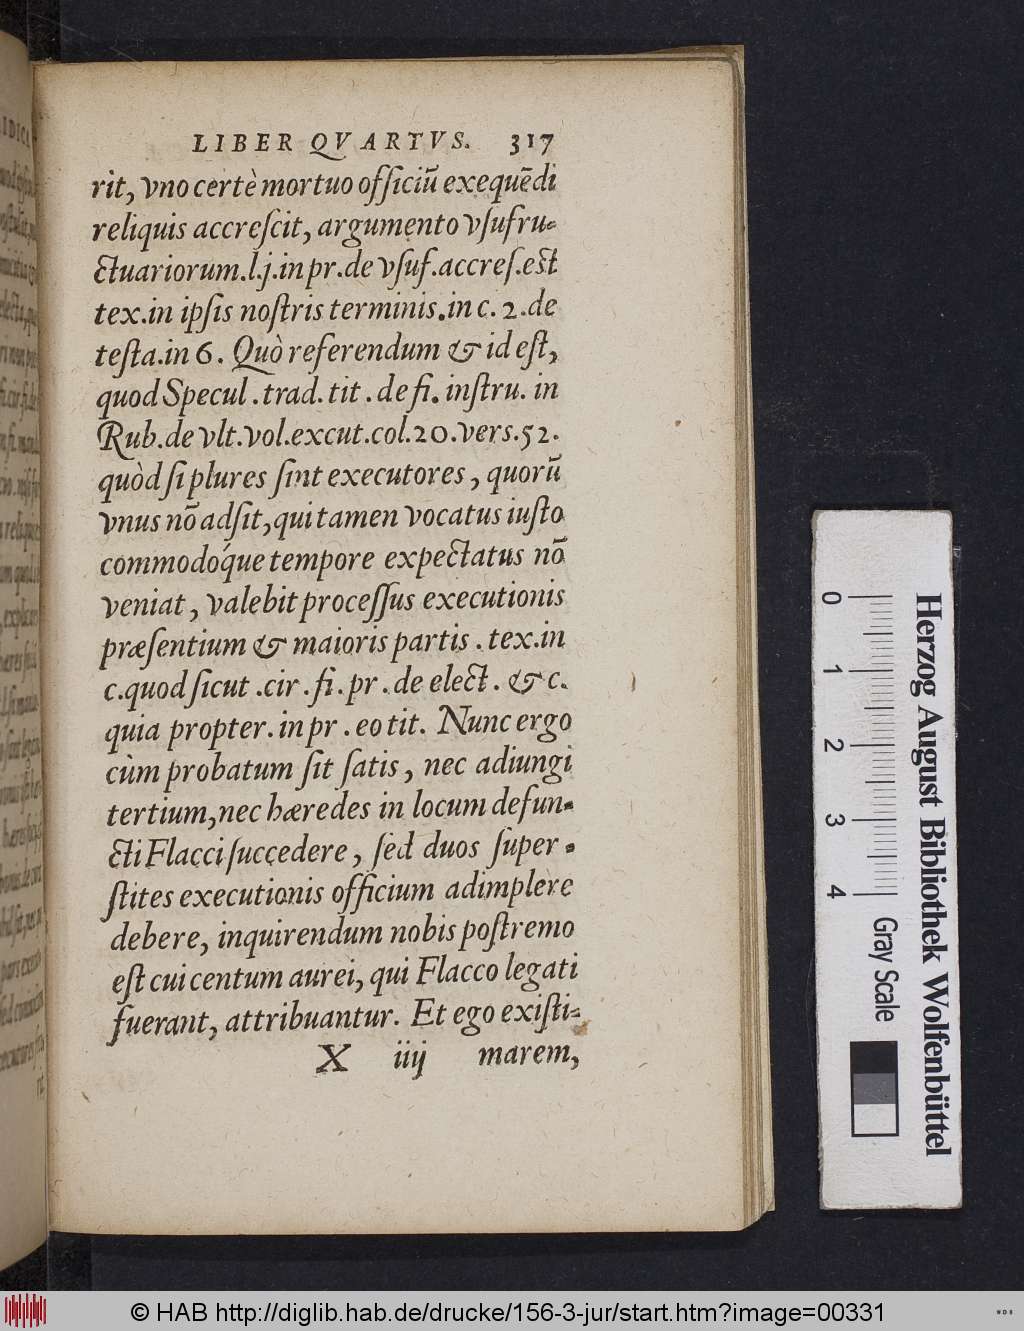 LIBER QVARTVS. 317
rit, vno certè mortuo officiũ exequẽdi
reliquis accreſcit, argumento vſufru-
ctuariorum.l.j.in pr.de vſuf.accreſ.eſt
tex.in ipſis noſtris terminis.in c. 2.de
teſta.in 6. Quò referendum & id eſt,
quod Specul.trad.tit.de fi.inſtru. in
Rub.de vlt.vol.excut.col.20.vers.52.
quòd ſi plures ſint executores, quorũ
vnus nõ adſit, qui tamen vocatus iuſto
commodóque tempore expectatus nõ
veniat, valebit proceſſus executionis
præſentium & maioris partis. tex.in
c.quod ſicut.cir.fi.pr.de elect. & c.
quia propter.in pr.eo tit. Nunc ergo
cùm probatum ſit ſatis, nec adiungi
tertium, nec hæredes in locum defun-
cti Flacci ſuccedere, ſed duos ſuper-
ſtites executionis officium adimplere
debere, inquirendum nobis poſtremo
eſt cui centum aurei, qui Flacco legati
fuerant, attribuantur. Et ego exiſti-
X iiij marem,
0 1 2 3 4 Gray Scale
Herzog August Bibliothek Wolfenbüttel
© HAB http://diglib.hab.de/drucke/156-3-jur/start.htm?image=00331